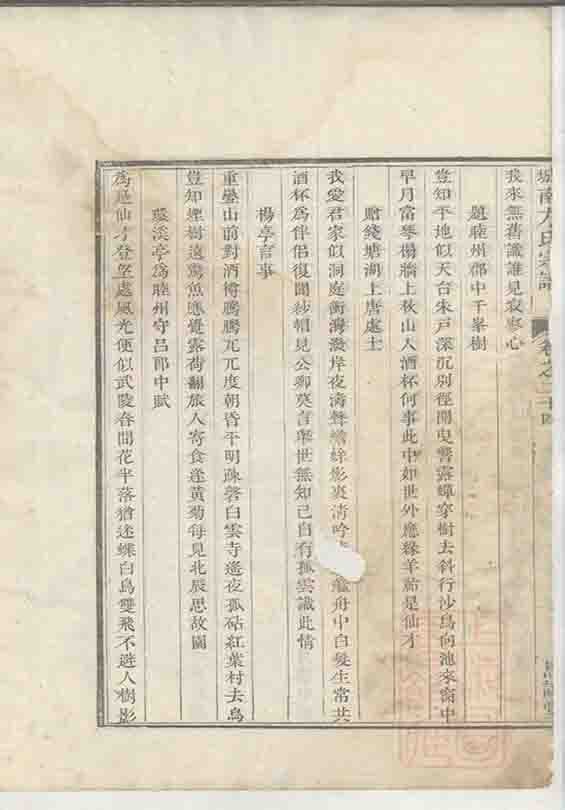 城南方氏宗譜　卷之二十四
我來無舊識誰見寂寥心
題睦州郡中千峯榭
豈知平地似天台朱戶深沉別徑開曳響露蟬穿樹去斜行沙鳥向池來窗中
早月當琴榻牆上秋山入酒杯何事此中如世外應緣羊祜是仙才
贈錢塘湖上唐處士
我愛君家似洞庭衝灣潑岸夜濤聲蟾蜍影裏清吟 舟中白髮生常共
酒杯爲伴侶復聞紗帽見公卿莫言舉世無知己自有孤雲識此情
楊亭言事
重疊山前對酒樽騰騰兀兀度朝昏平明疎磬白雲寺遙夜孤砧紅葉村去鳥
豈知煙樹遠驚魚應覺露荷翻旅人寄食逢黃菊每見北辰思故園
溪亭爲睦州守呂郎中賦
爲是仙才登望處風光便似武陵春閒花半落猶迷蝶白鳥雙飛不避人樹影